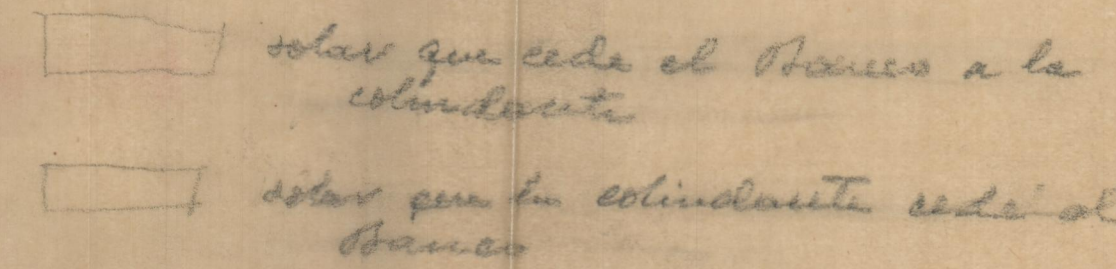 solar que cede el Banco a la
colindante
solar que la colindante cede al
Banco